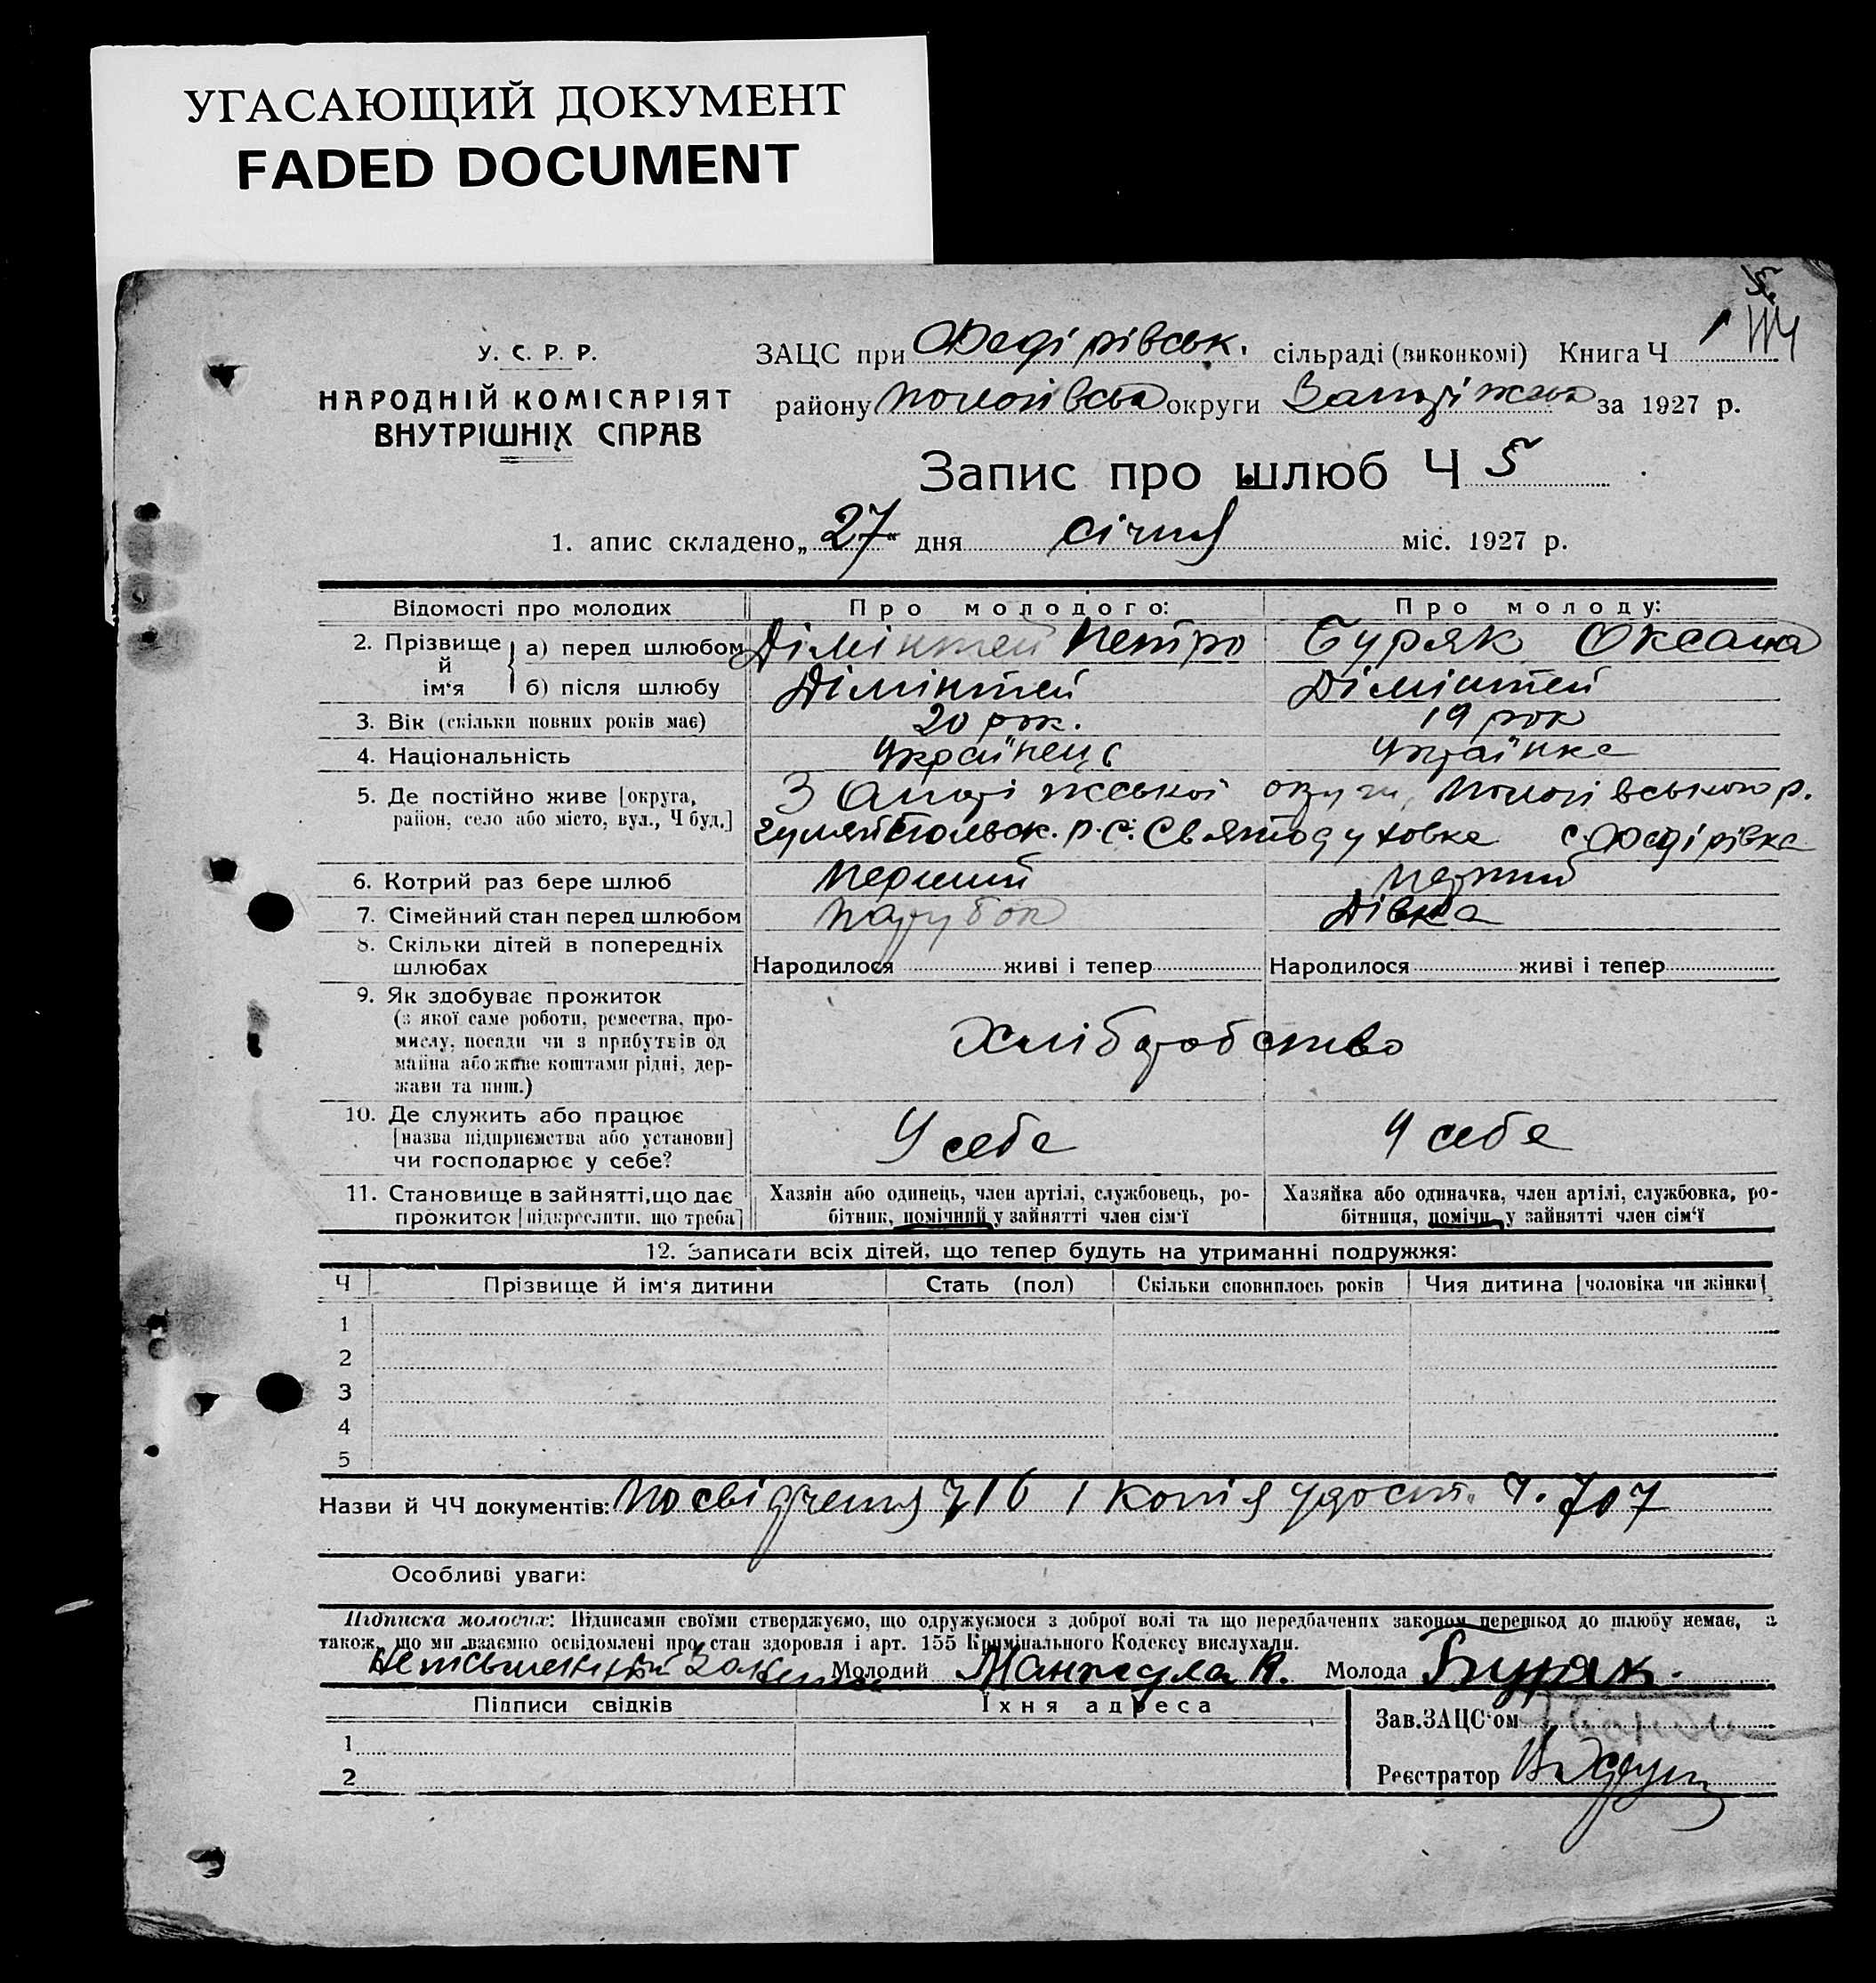 УГАСАЮЩИЙ ДОКУМЕНТ
FADED DOCUMENT
У. С. Р. Р.
НАРОДНІЙ КОМІСАРІЯТ
ВНУТРІШНІХ СПРАВ
ЗАЦС при Федірівськ. сільраді (виконкомі) Книга Ч 1
району Пологівська округи Запоріжська за 1927 р.
Запис про шлюб Ч 5
1. апис складено „27“ дня січня міс. 1927 р.
Відомості про молодих Про молодого: Про молоду:
2. Прізвище й ім‘я
а) перед шлюбом Дімінтей Петро Буряк Оксана
б) після шлюбу Дімінтей Дімінтей
3. Вік (скільки повних років має) 20 рок. 19 рок
4. Національність Українець Українка
5. Де постійно живе [округа, Запоріжської округи, Пологівського р.
район, село або місто, вул., Ч буд.] Гуляйпольск. р. с. Святодуховка с. Федірівка
6. Котрий раз бере шлюб Перший перший
7. Сімейний стан перед шлюбом Парубок Дівка
8. Скільки дітей в попередніх
шлюбах Народилося живі і тепер Народилося живі і тепер
9. Як здобуває прожиток
(з якої саме роботи, ремества, про-
мислу, посади чи з прибутків од
майна або живе коштами рідні, дер-
жави та инш.)
Хліборобство
10. Де служить або працює
[назва підприємства або установи]
чи господарює у себе?
У себе У себе
11. Становище в зайнятті, що дає
прожиток [підкреслити, що треба]
Хазяїн або одинець, член артілі, службовець, ро-
бітник, помічний у зайнятті член сім‘ї
Хазяйка або одиначка, член артілі, службовка, ро-
бітниця, помічн. у зайнятті член сім‘ї
12. Записати всіх дітей, що тепер будуть на утриманні подружжя:
Ч Прізвище й ім‘я дитини Стать (пол) Скільки сповнилось років Чия дитина [чоловіка чи жінки]
1
2
3
4
5
Назви й ЧЧ документів: Посвідчення 716 і копія удост. Ч. 707
Особливі уваги:
Підписка молодих: Підписами своїми стверджуємо, що одружуємося з доброї волі та що передбачених законом перешкод до шлюбу немає, а
також, що ми взаємно освідомлені про стан здоровля і арт. 155 Кримінального Кодексу вислухали.
Молодий Молода Буряк.
Підписи свідків Їхня адреса
1
2
Зав.ЗАЦС‘ом
Реєстратор